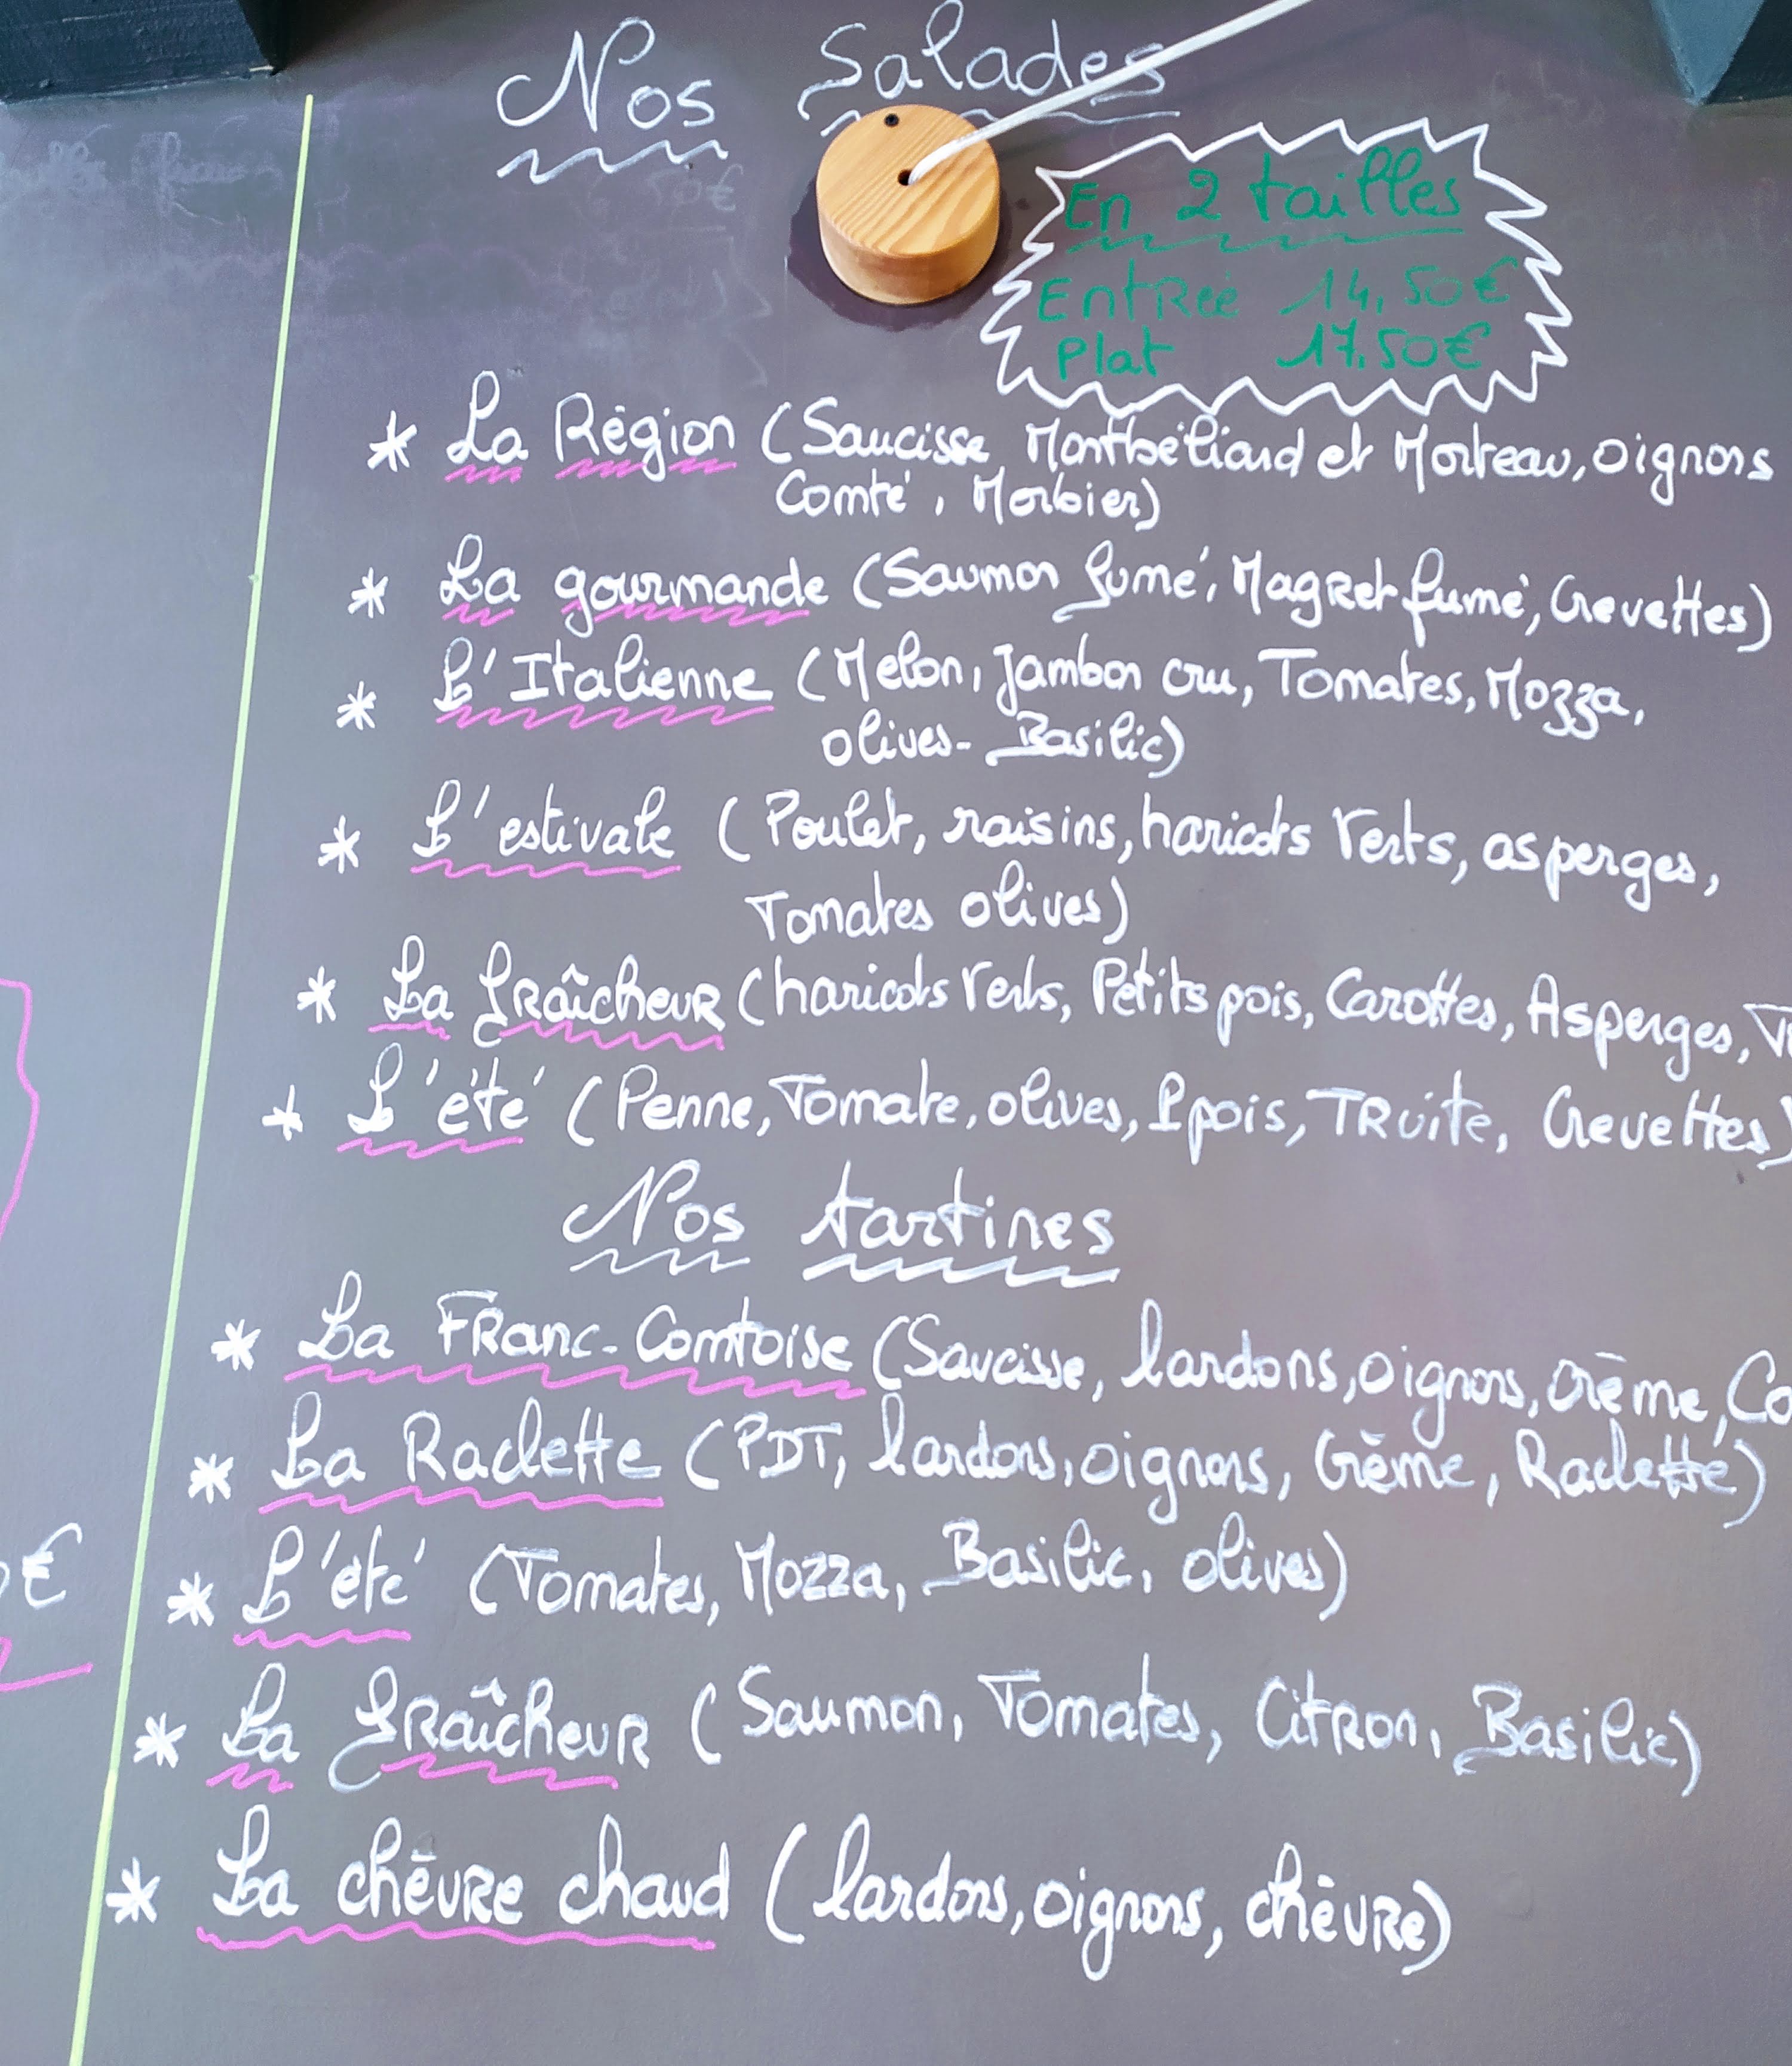 Nos Salades
En 2 tailles
Entrée 14,50€
Plat 17.50€
* La Région (Saucisse, Montbéliard et Morteau, oignons
Comté, Morbier)
* La gourmande (Saumon fumé, Magret fumé, Crevettes)
* L'Italienne (Melon, Jambon cru, Tomates, Mozza,
olives- Basilic)
* L'estivale (Poulet, raisins, haricots Verts, asperges,
Tomates olives)
* La fraîcheur (haricots Verts, Petits pois, Carottes, Asperges,
* L'été (Penne, Tomate, olives, Ppois, Truite, Crevettes)
Nos tartines
* La Franc-Comtoise (Saucisse, lardons, oignons, crème, Co
* La Raclette (PDT, lardons, oignons, Crème, Raclette)
* L'été (Tomates, Mozza, Basilic, olives)
€
* La fraîcheur (Saumon, Tomates, Citron, Basilic)
* La chèvre chaud (lardons, oignons, chèvre)